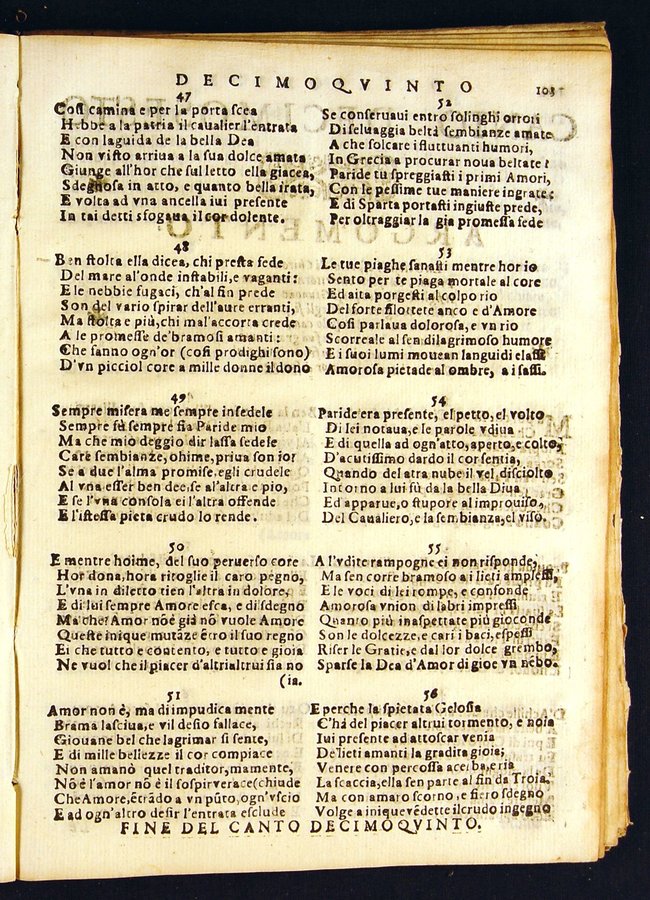 DECIMOQVINTO
103
47
Cosi camina e per la porta scea
Hebbe a la patria il caualier l'entrata
E con la guida de la bella Dea
Non visto arriua a la sua dolce amata
Giunge all'hor che sul letto ella giacea,
Sdegnosa in atto, e quanto bella irata,
E volta ad vna ancella iui presente
In tai detti sfogaua il cor dolente.
48
Ben stolta ella dicea, chi presta fede
Del mare al'onde instabili, e vaganti:
E le nebbie fugaci, ch'al fin prede
Son del vario spirar dell'aure erranti,
Ma stolta e più, chi mal'accorta crede
A le promesse de'bramosi amanti:
Che fanno ogn'or (così prodighi sono)
D'vn picciol core a mille donne il dono
49
Sempre misera me sempre infedele
Sempre fù sempre fia Paride mio
Ma che mio deggio dir lassa se dele
Care sembianze, ohime, priua son io?
Se a due l'alma promise, egli crudele
Al vna esser ben dee, se al'altra e pio,
E se l'vna consola ei l'altra offende
E l'istessa pieta crudo lo rende.
50
E mentre hoime, del suo peruerso core
Hor dona, hora ritoglie il caro pegno,
L'vna in diletto tien l'altra in dolore,
E di lui sempre Amore esca, e di sdegno
Ma che? Amor nõ è già nõ vuole Amore
Queste inique mutãze ẽtro il suo regno
Ei che tutto e contento, e tutto e gioia
Ne vuol che il piacer d'altri altrui sia no
(ia.
51
Amor non è, ma di impudica mente
Brama lasciua, e vil desio fallace,
Giouane bel che lagrimar si sente,
E di mille bellezze il cor compiace
Non amanò quel traditor, mamente,
Nõ è l'amor nõ è il sospir verace (chiude
Che Amore, ẽtrãdo a vn pũto, ogn'vscio
E ad ogn'altro desir l'entrata esclude
52
Se conseruaui entro solinghi orrori
Di seluaggia beltà sembianze amate
A che solcare i fluttuanti humori,
In Grecia a procurar noua beltate?
Paride tu spreggiasti i primi Amori,
Con le pessime tue maniere ingrate:
E di Sparta portasti ingiuste prede,
Per oltraggiar la gia promessa fede
53
Le tue piaghe sanasti mentre hor io
Sento per te piaga mortale al core
Ed aita porgesti al colpo rio
Del forte filottete anco e d'Amore
Cosi parlaua dolorosa, e vn rio
Scorreale al sen di lagrimoso humore
E i suoi lumi mouean languidi e lassi
Amorosa pietade al ombre, a i sassi.
54
Paride era presente, el petto, el volto
Di lei notaua, e le parole vdiua
E di quella ad ogn'atto, aperto, e colto,
D'acutissimo dardo il cor sentia,
Quando del atra nube il vel disciolto
Intorno a lui fù da la bella Diua
Ed apparue, o stupore al improuiso,
Del Caualiero, e la sembianza, el viso.
55
A l'vdite rampogne ei non risponde,
Ma sen corre bramoso a i lieti amplessi,
E le voci di lei rompe, e confonde
Amorosa vnion di labri impressi
Quanto più inaspettate più gioconde
Son le dolcezze, e cari i baci, espessi
Riser le Gratie, e dal lor dolce grembo,
Sparse la Dea d'Amor di gioe vn nebo.
56
E perche la spietata Gelosia
C'hà del piacer altrui tormento, e noia
Iui presente ad attoscar venia
De'lieti amanti la gradita gioia;
Venere con percossa acerba, e ria
La scaccia, ella sen parte al fin da Troia.
Ma con amaro scorno, e fiero sdegno
Volge a inique vẽdette il crudo ingegno
FINE DEL CANTO DECIMOQVINTO.